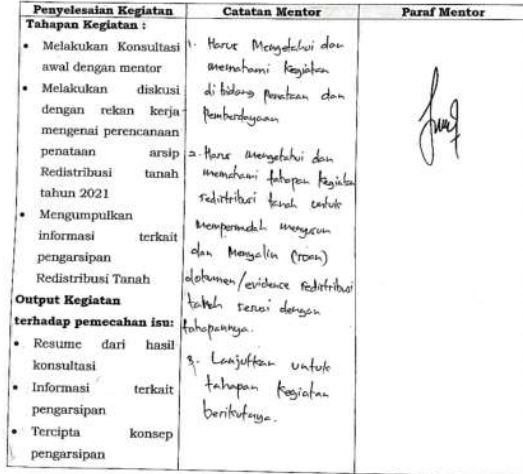 Penyelesaian Kegiatan
Tahapan Kegiatan :
• Melakukan Konsultasi
awal dengan mentor
• Melakukan diskusi
dengan rekan kerja
mengenai perencanaan
penataan arsip
Redistribusi tanah
tahun 2021
• Mengumpulkan
informasi terkait
pengarsipan
Redistribusi Tanah
Output Kegiatan
terhadap pemecahan isu:
• Resume dari hasil
konsultasi
• Informasi terkait
pengarsipan
• Tercipta konsep
pengarsipan
Catatan Mentor
1. Harus Mengetahui dan
memahami Kegiatan
di bidang Penataan dan
Pemberdayaan
2. Harus mengetahui dan
memahami tahapan kegiatan
redistribusi tanah untuk
Mempermudah menyusun
dan Menyalin (scan)
dokumen/evidence redistribusi
tanah sesuai dengan
tahapannya.
3. Lanjutkan untuk
tahapan kegiatan
berikutnya.
Paraf Mentor